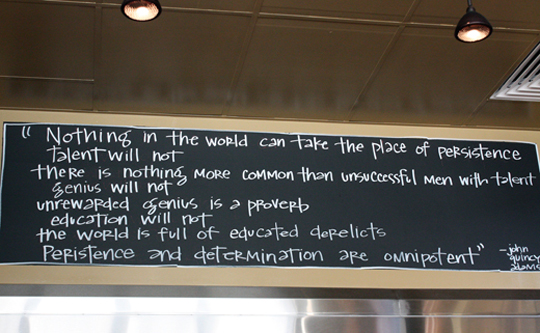 "Nothing in the world can take the place of persistence
talent will not
there is nothing more common than unsuccessful men with talent
genius will not
unrewarded genius is a proverb
education will not
the world is full of educated derelicts
Peristence and determination are omnipotent"
-john
quincy
adams